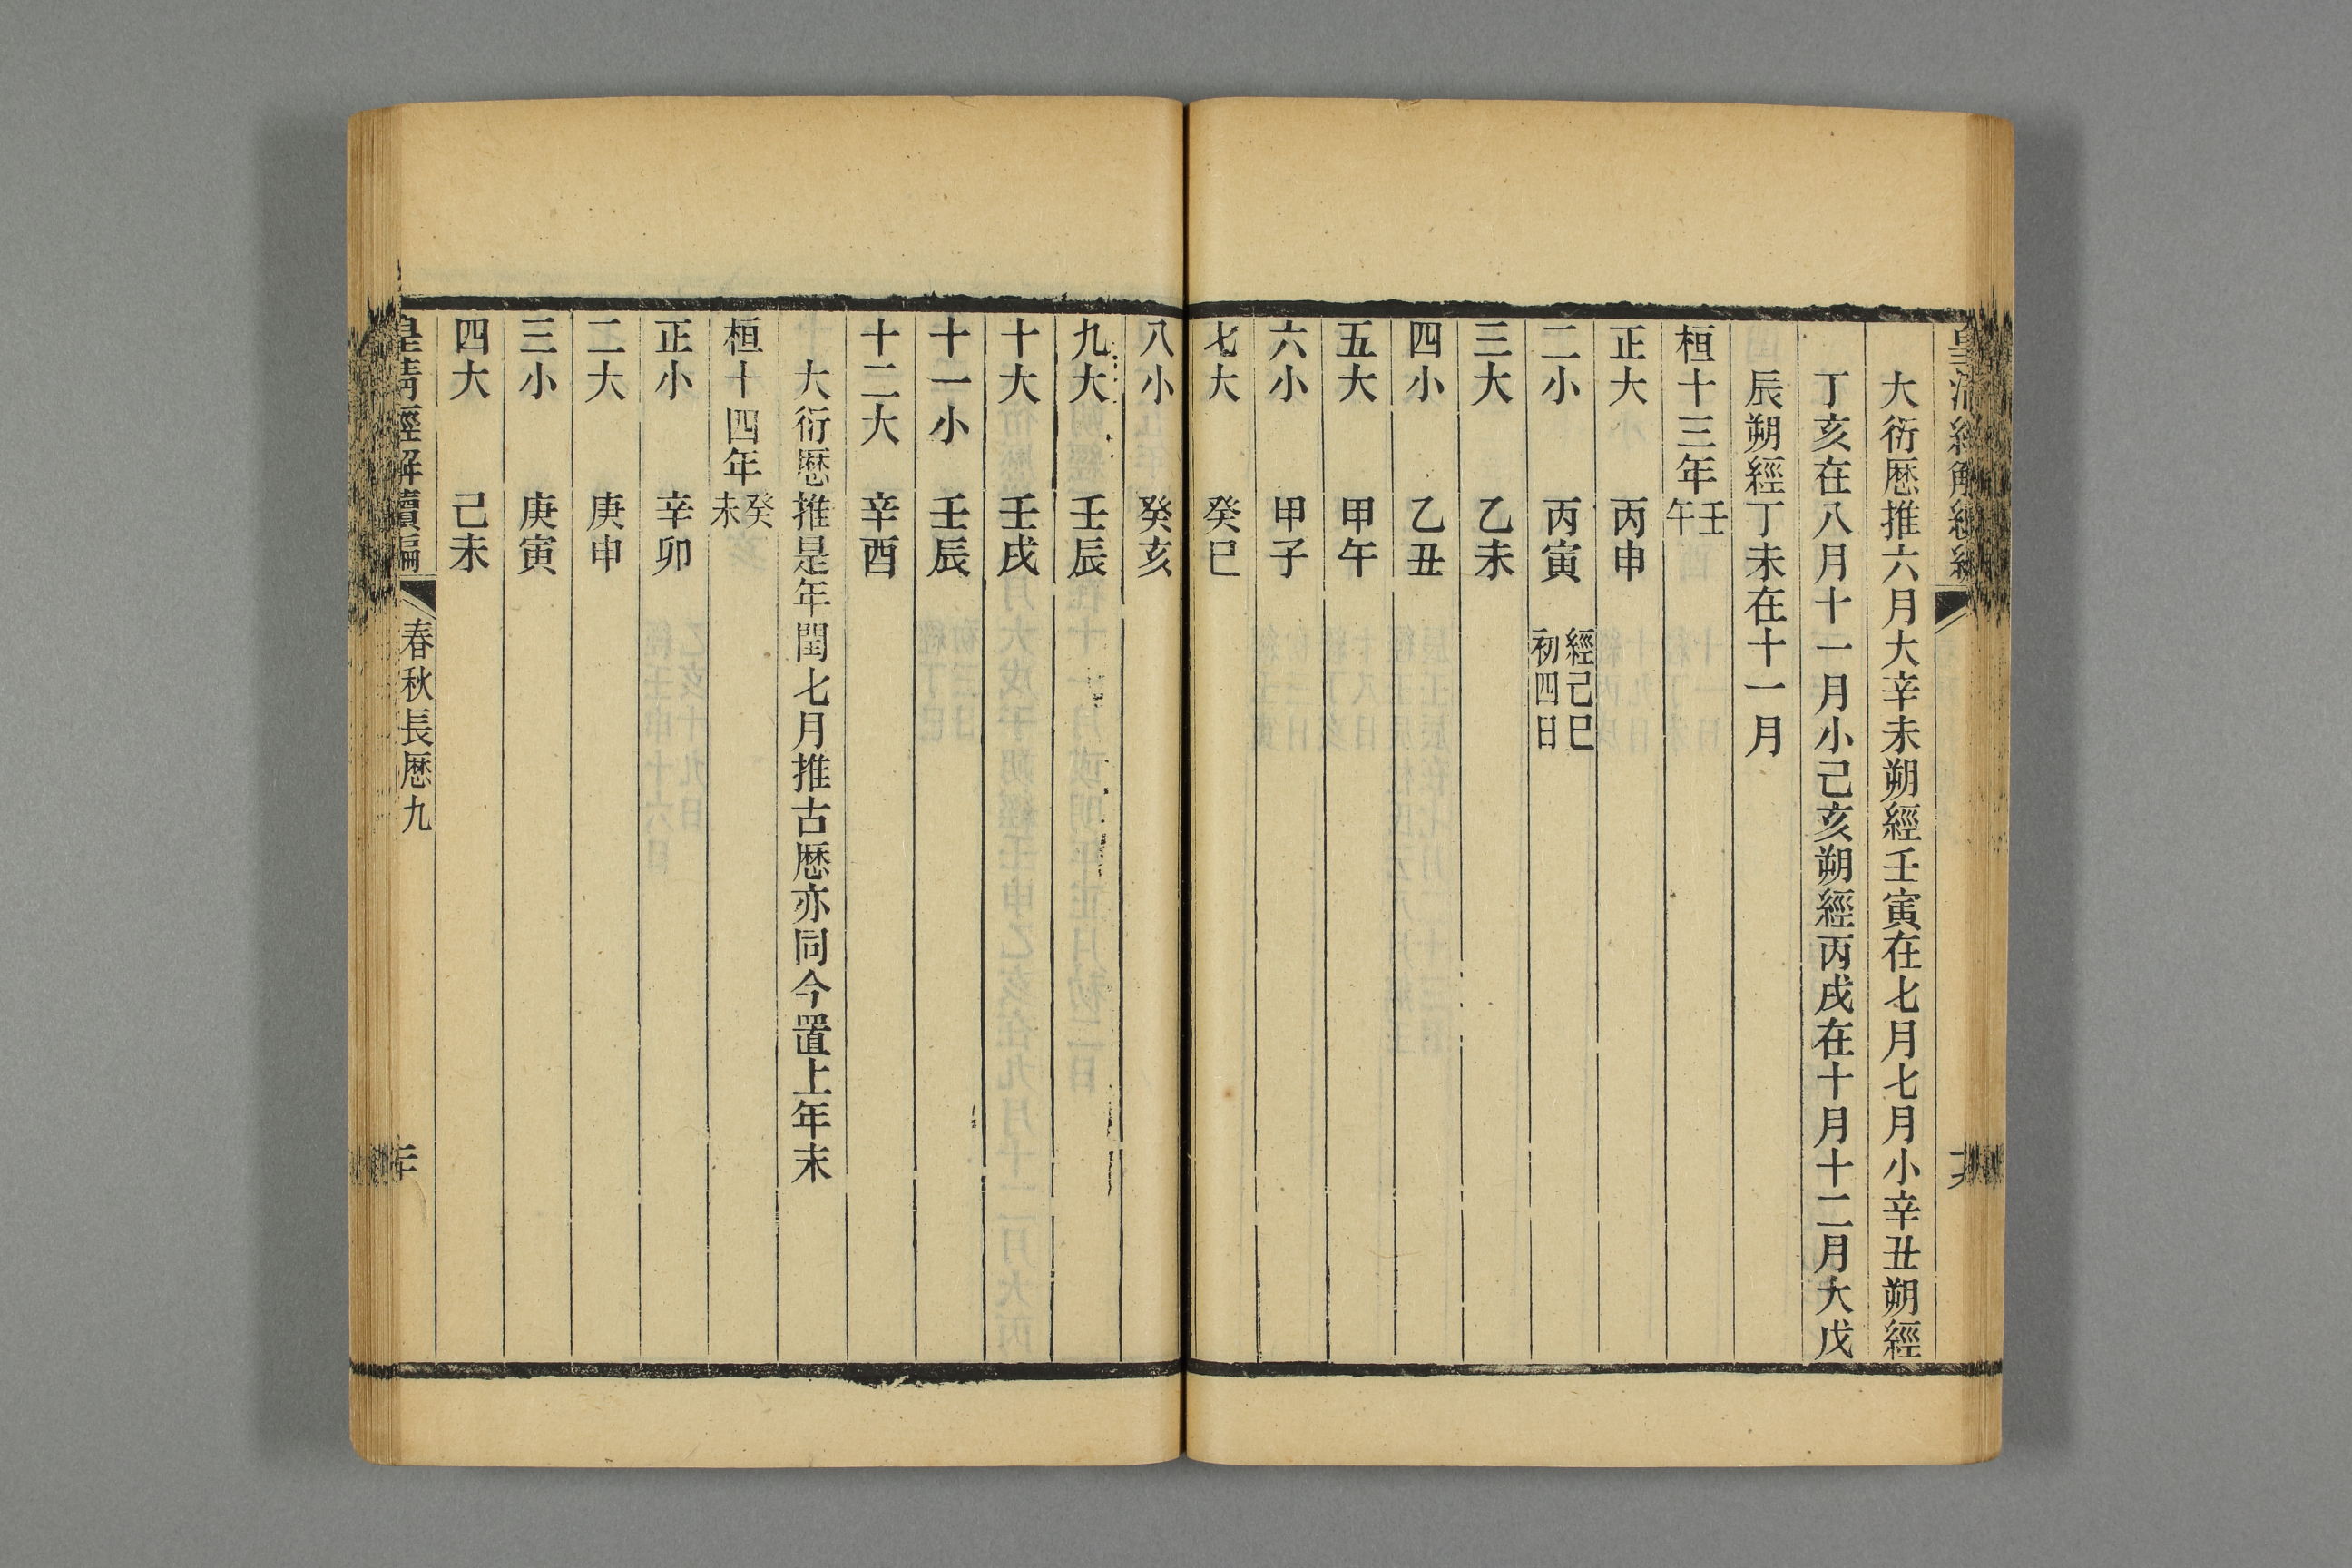 大衍厯推六月大辛未朔經壬寅在七月七月小辛丑朔經
丁亥在八月十一月小己亥朔經丙戌在十月十二月大戊
辰朔經丁未在十一月
桓十三年壬午
正大 丙申
二小 丙寅 經己巳初四日
三大 乙未
四小 乙丑
五大 甲午
六小 甲子
七大 癸巳
八小 癸亥
九大 壬辰
十大 壬戌
十一小 壬辰
十二大 辛酉
大衍厯推是年閏七月推古厯亦同今置上年末
桓十四年癸未
正小 辛卯
二大 庚申
三小 庚寅
四大 己未
皇清經解續編 春秋長厯九